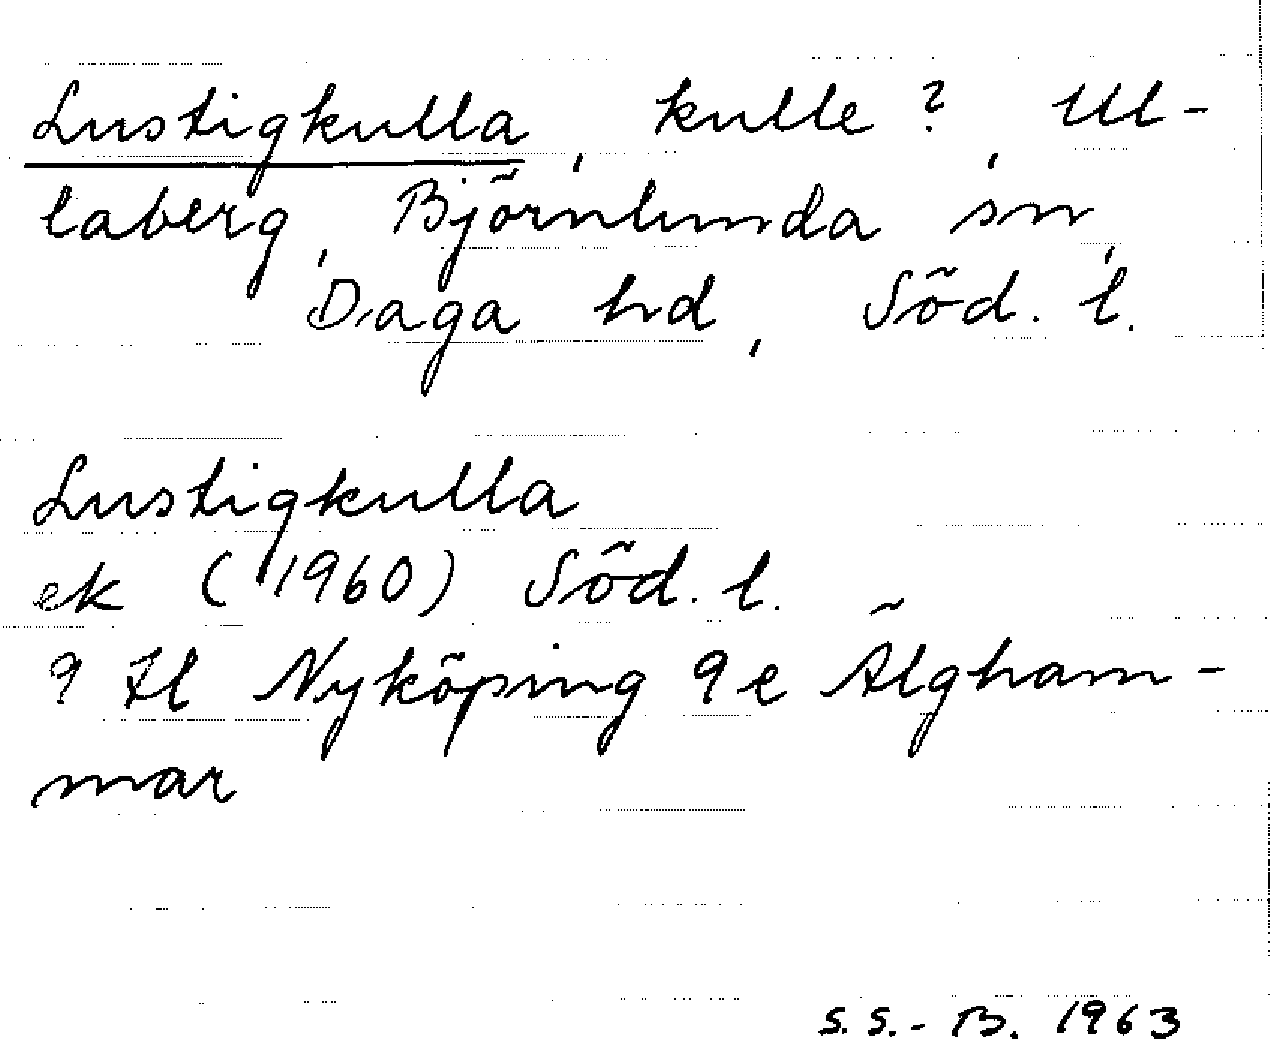 Lustigkulla, kulle?, Ul-
laberg, Björnlunda sn,
Daga hd, Söd. l.
Lustigkulla
ek (1960) Söd. l.
9 H Nyköping 9 e Älgham-
mar
S. S.-B. 1963